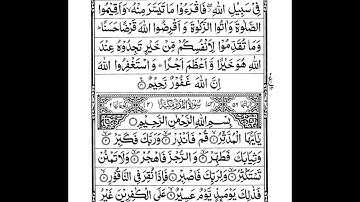 فِىْ سَبِيْلِ اللّٰهِ ۖ فَاقْرَءُوْا مَا تَيَسَّرَ مِنْهُ ۙ وَاَقِيْمُوا
الصَّلٰوةَ وَاٰتُوا الزَّكٰوةَ وَاَقْرِضُوا اللّٰهَ قَرْضًا حَسَنًا ؕ
وَمَا تُقَدِّمُوْا لِاَنْفُسِكُمْ مِّنْ خَيْرٍ تَجِدُوْهُ عِنْدَ
اللّٰهِ هُوَ خَيْرًا وَّاَعْظَمَ اَجْرًا ؕ وَاسْتَغْفِرُوا اللّٰهَ ؕ
اِنَّ اللّٰهَ غَفُوْرٌ رَّحِيْمٌ
سُوْرَةُ الْمُدَّثِّرِ مَكِّيَّةٌ
بِسْمِ اللّٰهِ الرَّحْمٰنِ الرَّحِيْمِ
يٰٓاَيُّهَا الْمُدَّثِّرُ ۙ قُمْ فَاَنْذِرْ ۙ وَرَبَّكَ فَكَبِّرْ ۙ
وَثِيَابَكَ فَطَهِّرْ ۙ وَالرُّجْزَ فَاهْجُرْ ۙ وَلَا تَمْنُنْ
تَسْتَكْثِرُ ۙ وَلِرَبِّكَ فَاصْبِرْ ؕ فَاِذَا نُقِرَ فِى النَّاقُوْرِ ۙ
فَذٰلِكَ يَوْمَئِذٍ يَّوْمٌ عَسِيْرٌ ۙ عَلَى الْكٰفِرِيْنَ غَيْرُ